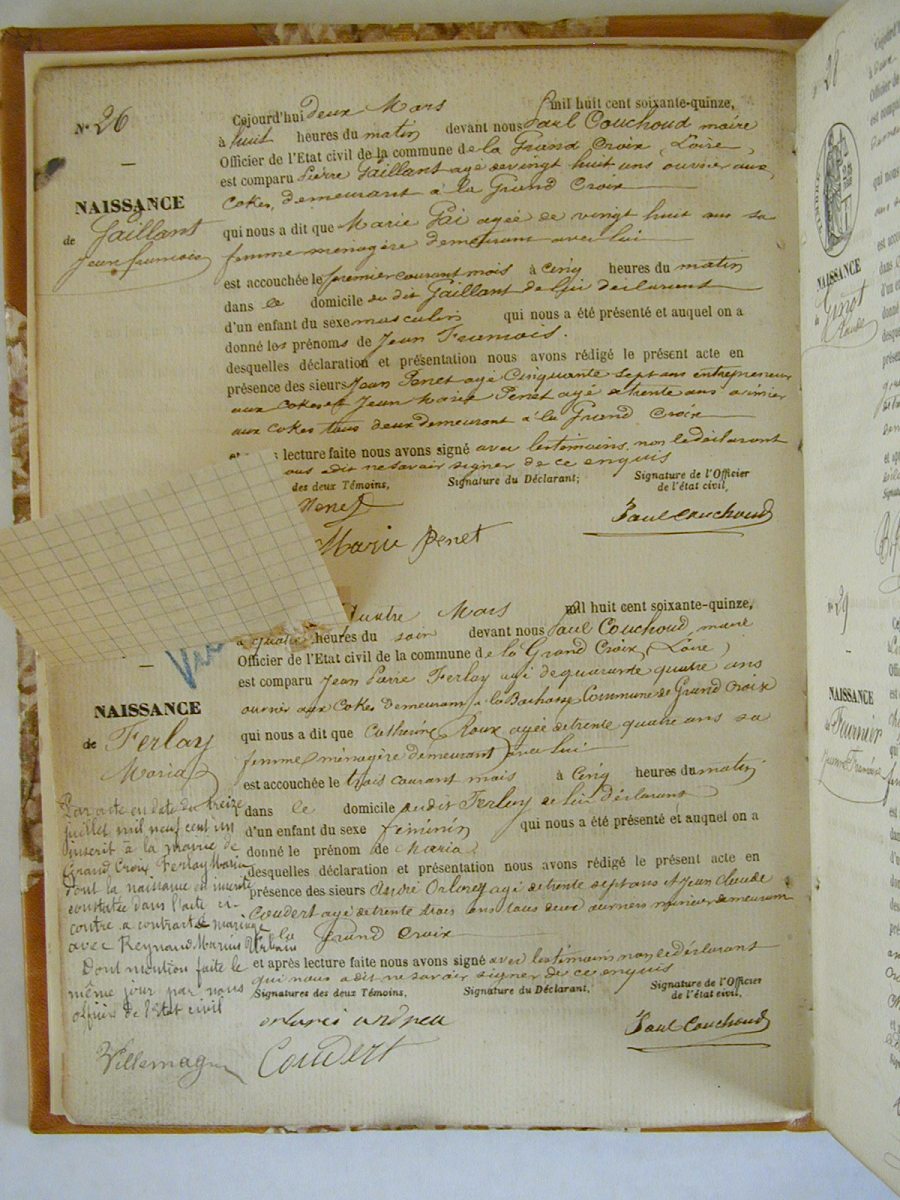 N° 26
NAISSANCE
de Gaillant
Jean francois
Cejourd'hui deux Mars mil huit cent soixante-quinze,
à huit heures du matin devant nous Paul Couchoud maire
Officier de l'Etat civil de la commune de la Grand Croix (Loire)
est comparu Pierre Gaillant agé de vingt huit ans ouvrier aux
Cokes, demeurant à la Grand Croix
qui nous a dit que Marie Gai agée de vingt huit ans sa
femme menagère demeurant avec lui
est accouchée le premier courant mois à Cinq heures du matin
dans le domicile du dit Gaillant de lui déclarant
d'un enfant du sexe masculin qui nous a été présenté et auquel on a
donné les prénoms de Jean Francois.
desquelles déclaration et présentation nous avons rédigé le présent acte en
présence des sieurs Jean Penet agé Cinquante sept ans entrepreneur
aux Cokes et Jean Marie Penet agé de trente ans
aux Cokes tous deux demeurant à la Grand Croix
lecture faite nous avons signé avec les témoins, non le déclarant
ous a dit ne savoir signer de ce enquis
des deux Témoins, Signature du Déclarant; Signature de l'Officier
de l'état civil,
Penet
Paul Couchoud
Marie Penet
NAISSANCE
de Ferlay
Maria
Par acte en date du treize
juillet mil neuf cent un
inscrit à la mairie de
Grand Croix Ferlay Maria
dont la naissance est
constatée dans l'acte ci-
contre a contracté mariage
avec Reynaud Marius Urbain
Dont mention faite le
même jour par nous
officier de l'Etat civil
Villemagne
quatre Mars mil huit cent soixante-quinze,
à quatre heures du soir devant nous Paul Couchoud, maire
Officier de l'Etat civil de la commune de la Grand Croix (Loire)
est comparu Jean Pierre Ferlay agé de quarante quatre ans
ouvrier aux Cokes demeurant à la Bachasse Commune de Grand Croix
qui nous a dit que Catherine Roux agée de trente quatre ans sa
femme (ménagère demeurant) avec lui
est accouchée le trois courant mois à Cinq heures du matin
dans le domicile du dit Ferlay de lui déclarant
d'un enfant du sexe féminin qui nous a été présenté et auquel on a
donné le prénom de Maria
desquelles déclaration et présentation nous avons rédigé le présent acte en
présence des sieurs André agé de trente sept ans et Jean Claude
Coudert agé de trente trois ans tous deux ouvriers mineurs demeurant
à la Grand Croix
et après lecture faite nous avons signé avec les témoins non le déclarant
qui nous a dit ne savoir signer de ce enquis
Signatures des deux Témoins, Signature du Déclarant, Signature de l'Officier
de l'état civil,
Paul Couchoud
Coudert
28
TIMBRE
NAISSANCE
N° 29
NAISSANCE
de Fournier
Jeanne Françoise